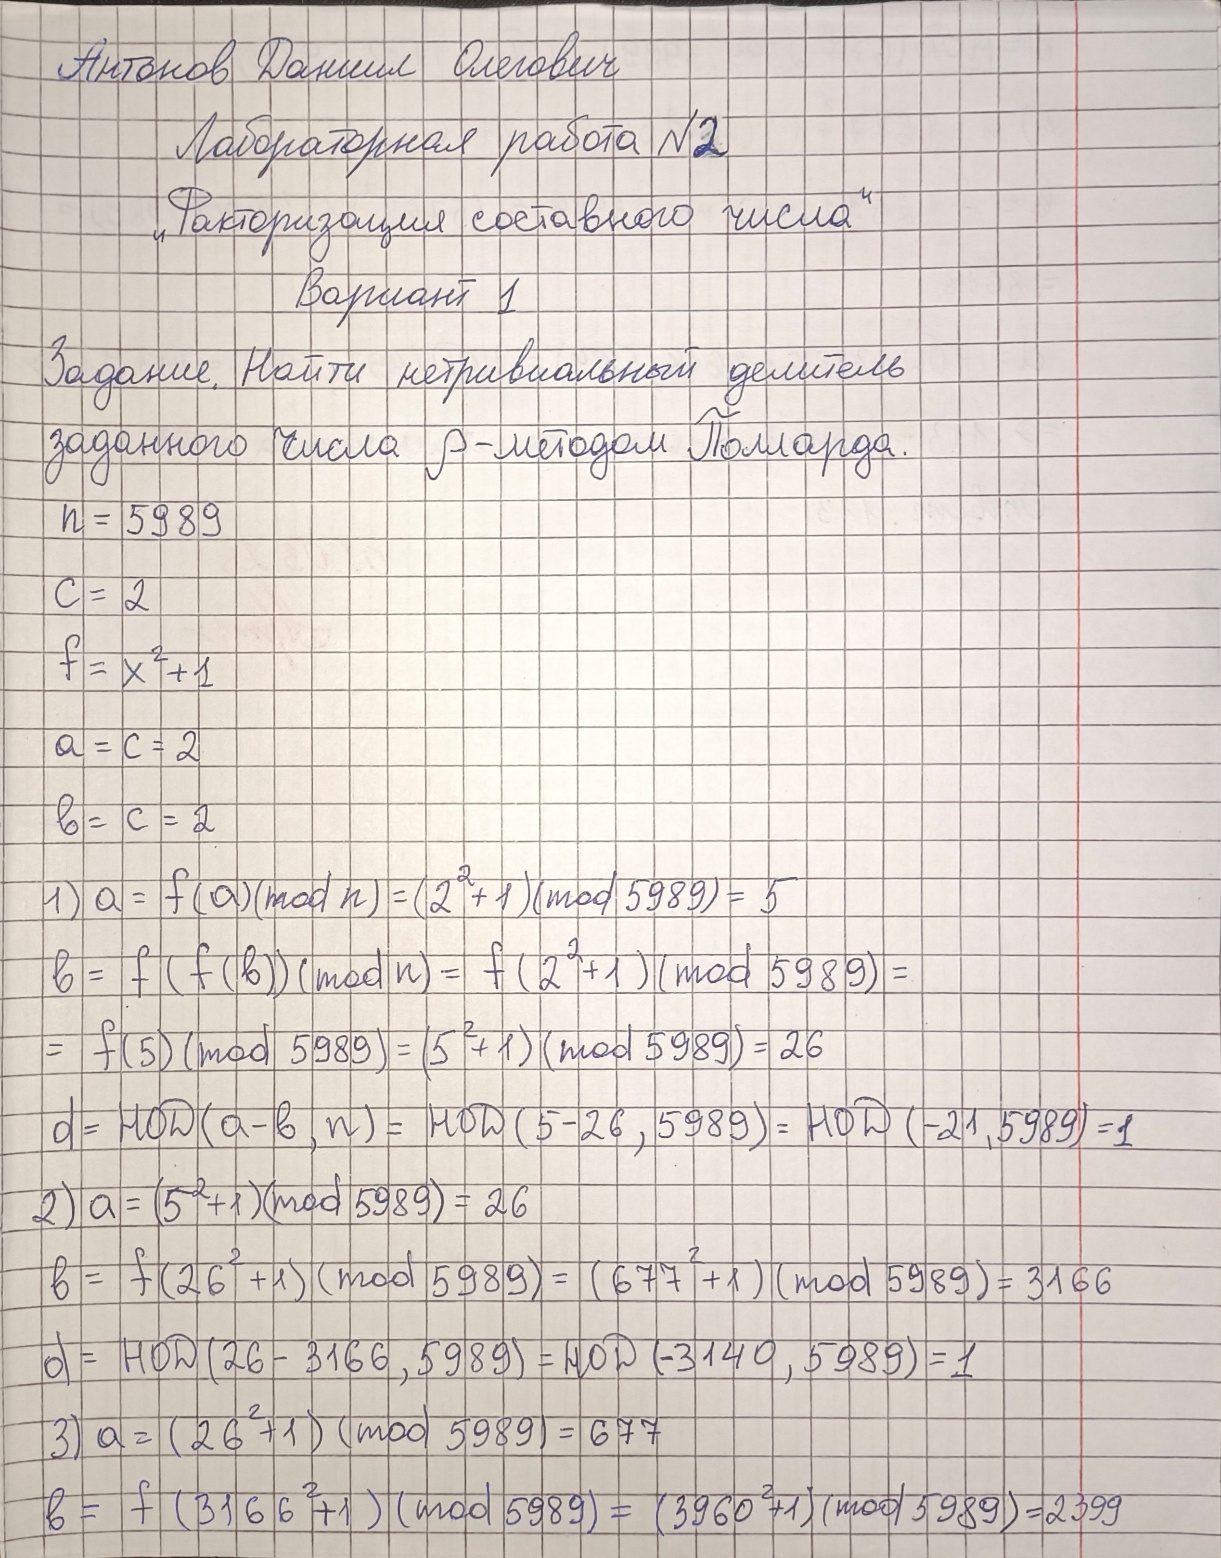 Антонов Даниил Олегович
Лабораторная работа №2
„Факторизация составного числа“
Вариант 1
Задание. Найти нетривиальный делитель
заданного числа ρ-методом Полларда.
n = 5989
c = 2
f = x²+1
a = c = 2
b = c = 2
1) a = f(a)(mod n) = (2²+1)(mod 5989) = 5
b = f(f(b))(mod n) = f(2²+1)(mod 5989) =
= f(5)(mod 5989) = (5²+1)(mod 5989) = 26
d = НОД(a-b, n) = НОД(5-26, 5989) = НОД(-21, 5989) = 1
2) a = (5²+1)(mod 5989) = 26
b = f(26²+1)(mod 5989) = (677²+1)(mod 5989) = 3166
d = НОД(26-3166, 5989) = НОД(-3140, 5989) = 1
3) a = (26²+1)(mod 5989) = 677
b = f(3166²+1)(mod 5989) = (3960²+1)(mod 5989) = 2399